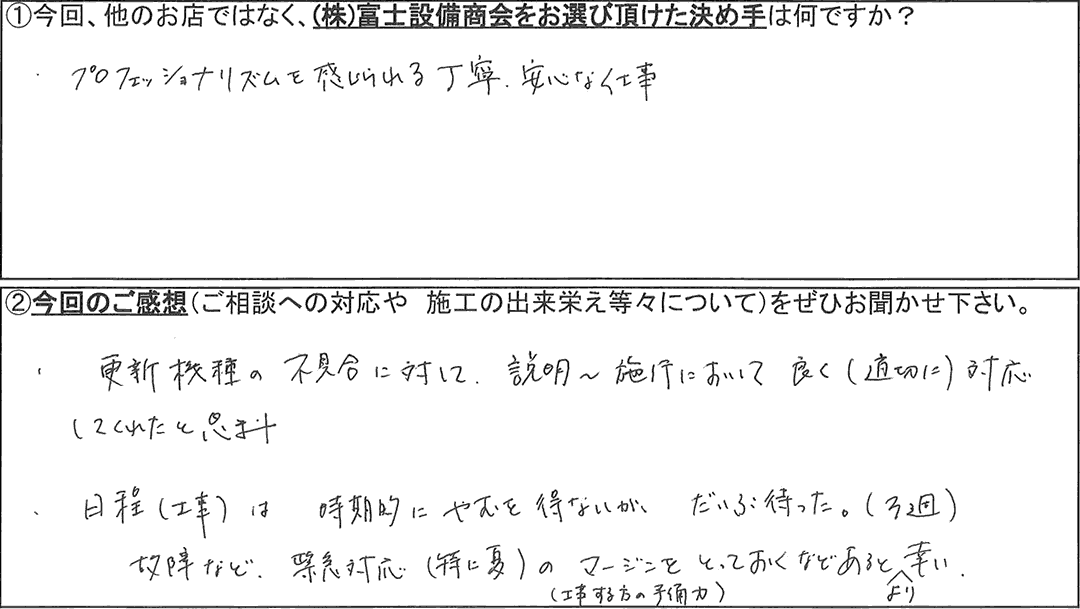 ①今回、他のお店ではなく、(株)富士設備商会をお選び頂けた決め手は何ですか？
・プロフェッショナリズムを感じられる丁寧、安心な仕事
②今回のご感想(ご相談への対応や 施工の出来栄え等々について)をぜひお聞かせ下さい。
・更新機種の不具合に対して、説明～施行において良く(適切に)対応
してくれたと思ます
・日程(工事)は 時期的にやむを得ないが、だいぶ待った。(3週)
故障など、緊急対応(特に夏)のマージンをとっておくなどあると幸い、
(工事する方の予備力) より